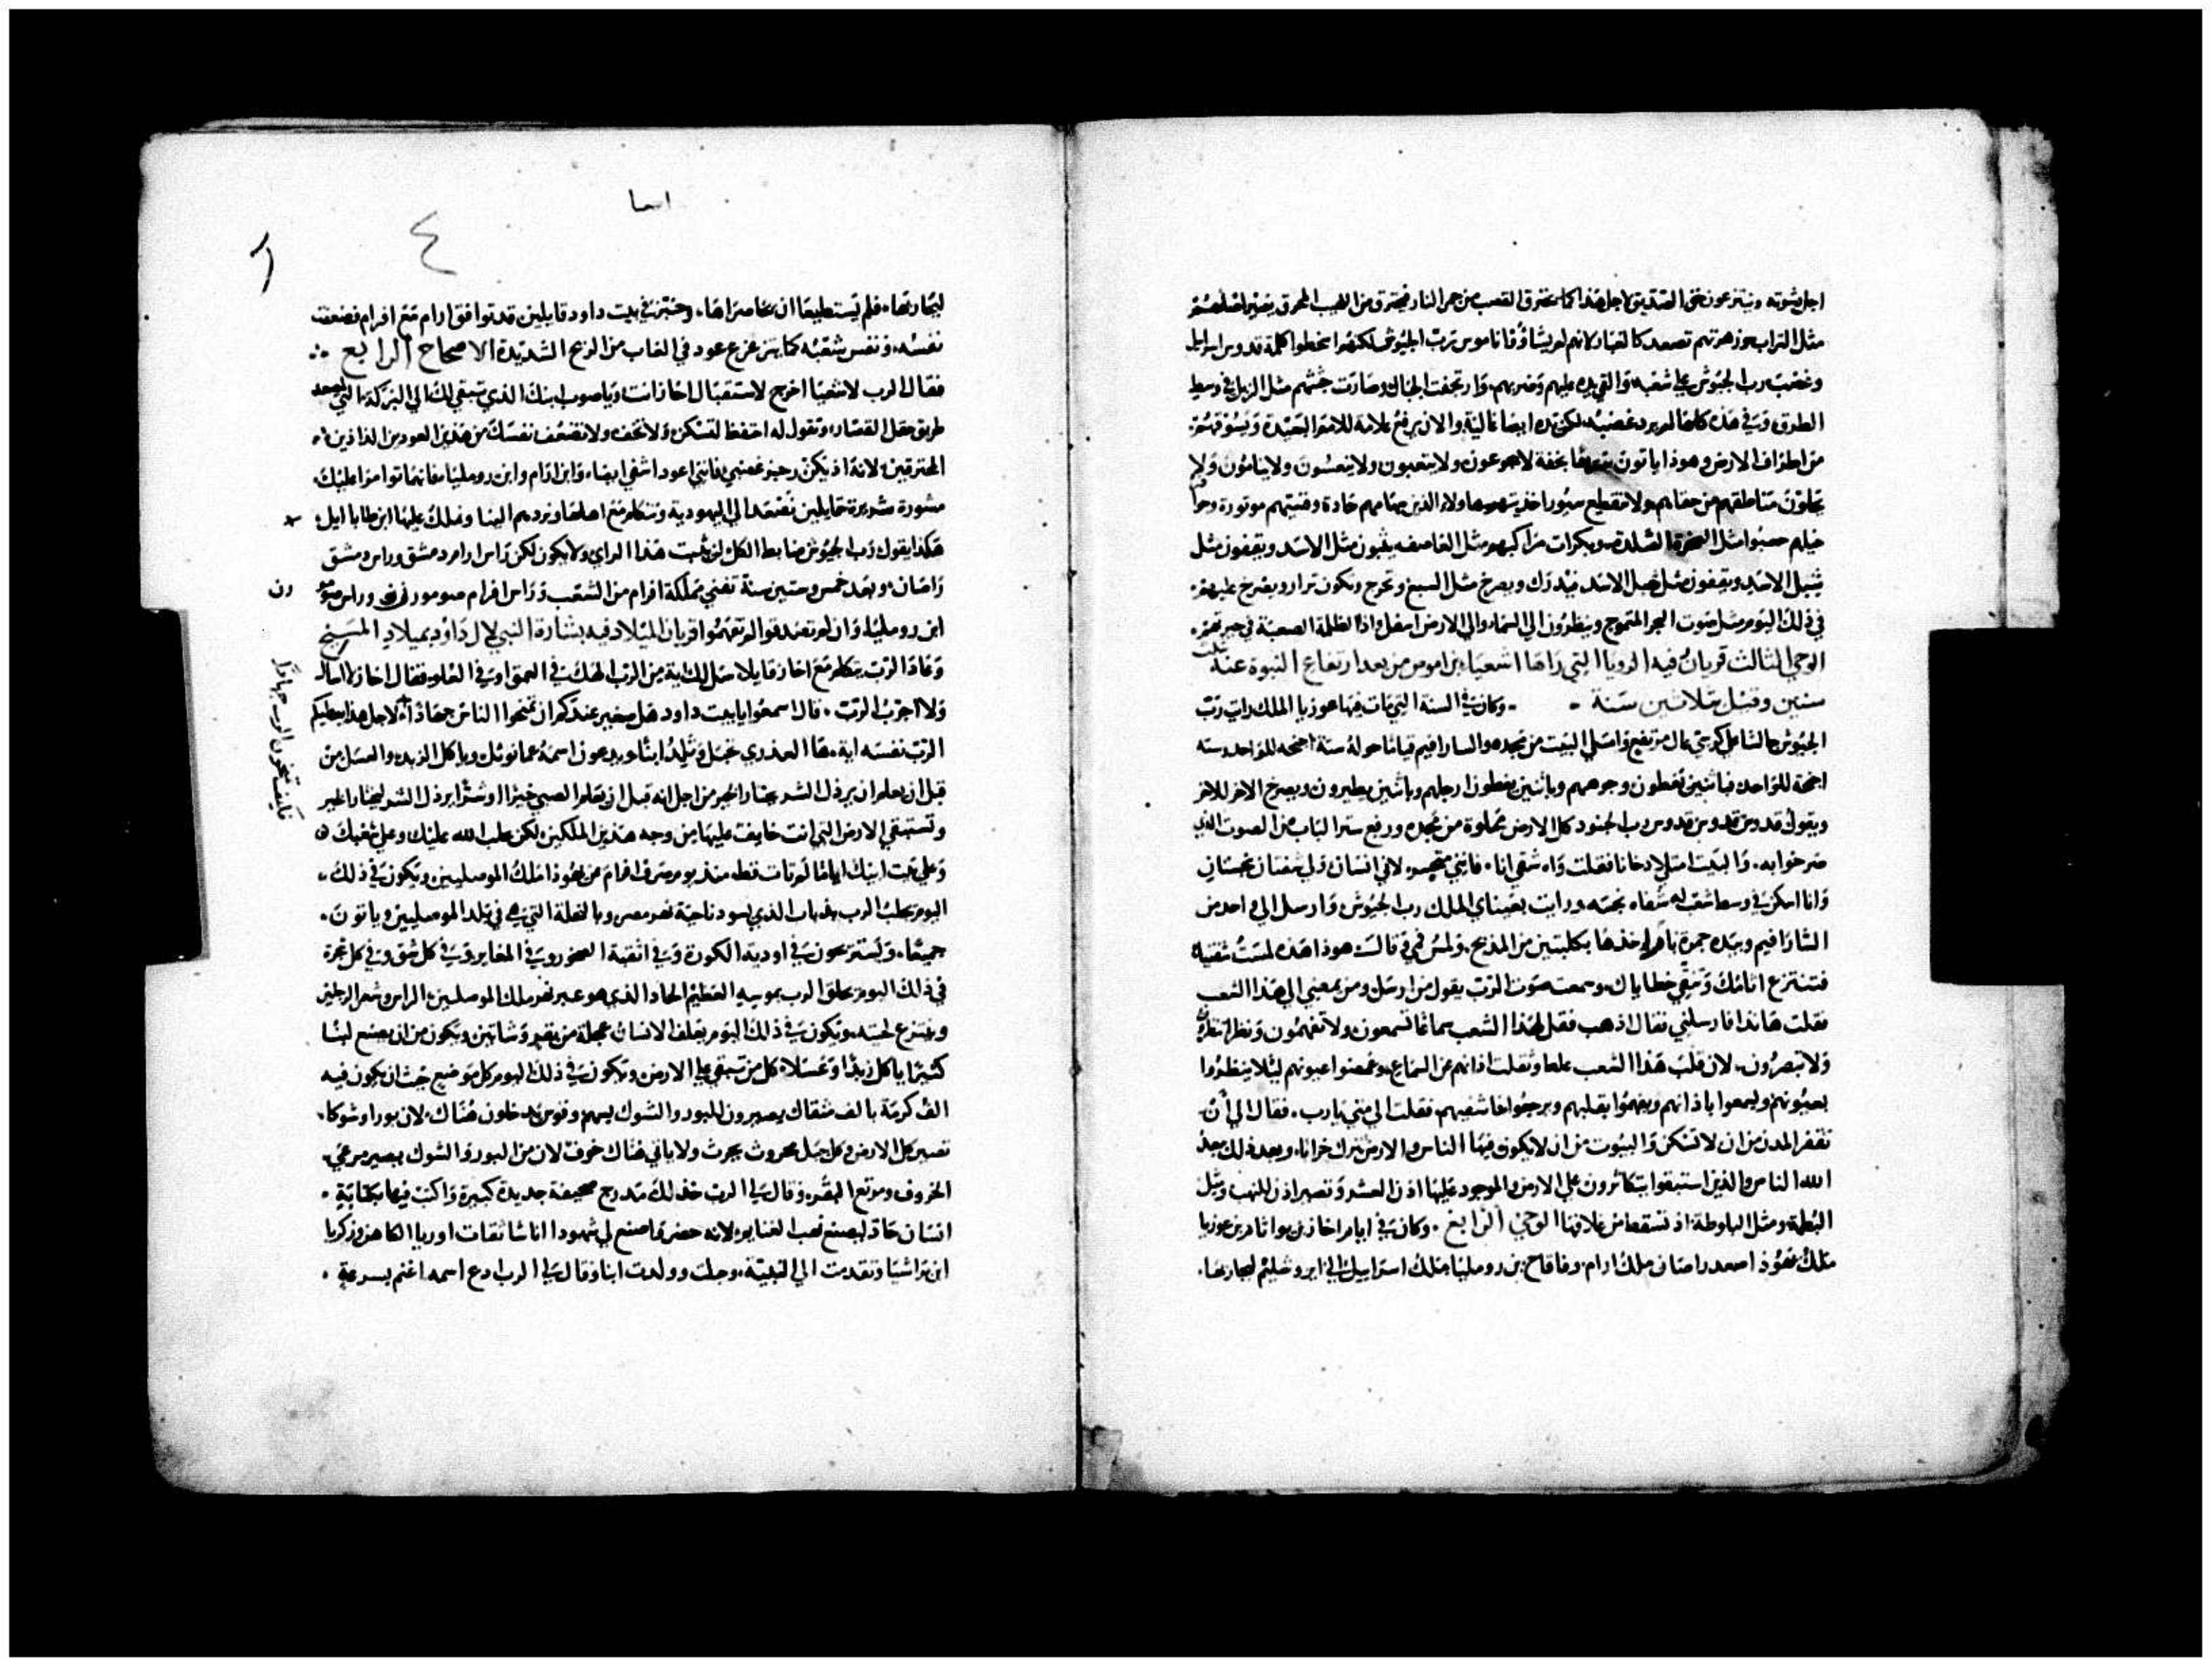 مثل التراب وزهرتهم تصعد كالغبار لانهم لم يشاؤا ناموس رب الجيوش لكنهم اسخطوا كلمة قدوس اسرايل
وغضب رب الجيوش علي شعبه والقي يده عليهم وضربهم وارتجفت الجبال وصارت جثثهم مثل الزبل في وسط
الطرق وفي هذه كلها لم يرد غضبه لكن يده ايضا عالية والان يرفع علامة للامم البعيدة
من اطراف الارض وهوذا ياتون بخفة لا يجوعون ولا يتعبون ولا ينعسون ولا ينامون ولا
يحلون مناطقهم من حقايهم ولا تنقطع سيور احذيتهم هاولاء الذين سهامهم حادة وقسيهم موتورة وحوافر
خيلهم حسبوا مثل الصخرة الصلدة وبكرات مراكبهم مثل العاصفه يثبون مثل الاسد ويقفون مثل
شبل الاسد ويقفون مثل شبل الاسد فيدرك ويصرخ مثل السبع ويخرج ويكون
في ذلك اليوم مثل صوت البحر المتموج وينظرون الي السماء والي الارض اسفل واذا الظلمة الصعبة في حيرتهم
الوحي الثالث قريان فيه الرويا التي راها اشعياء بن اموص من بعد ارتفاع النبوة عنه ثلث
سنين وقبل بثلاثين سنة وكان في السنة التي مات فيها عوزيا الملك رايت رب
الجيوش جالسا علي كرسي عال مرتفع وامتلي البيت من مجده والسارافيم قياما حوله ستة اجنحه للواحد وسته
اجنحة للواحد فباثنين يغطون وجوههم وباثنين يغطون ارجلهم وباثنين يطيرون ويصرخ الاخر للاخر
ويقول قدوس قدوس قدوس رب الجنود كل الارض مملوة من مجده ورفع ستر الباب من الصوت الذي
صرخوا به والبيت امتلا دخانا فقلت واه شقي انا فانني متحسر لاني انسان ولي شفتان نجستان
وانا اسكن في وسط شعب له شفاه نجسه ورايت بعيناي الملك رب الجيوش وارسل الي واحد من
السارافيم وبيده جمرة نار اخذها بكلبتين من المذبح ولمس فمي وقال هوذا هذه لمست شفتيك
فتنتزع اثامك وتنقي خطاياك وسمعت صوت الرب يقول من ارسل ومن يمضي الي هذا الشعب
فقلت هانذا فارسلني فقال اذهب فقل لهذا الشعب سماعا تسمعون ولا تفهمون ونظرا تنظرون
ولا تبصرون لان قلب هذا الشعب غلظ وثقلت اذانهم عن السماع وغمضوا عيونهم ليلا ينظروا
بعيونهم ويسمعوا باذانهم ويفهموا بقلبهم ويرجعوا فاشفيهم فقلت الي متي يارب فقال الي ان
تقفر المدن من ان لا تسكن والبيوت من ان لا يكون فيها الناس والارض تترك خرابا وبعد ذلك يبعد
الله الناس والذين استبقوا يتكاثرون علي الارض والموجود عليها اذن العشر وتصير اذن للنهب ومثل
البطمة ومثل البلوطة اذ تسقط من غلافها الوحي الرابع وكان في ايام احاز بن يواثام بن عوزيا
ملك يهوذا اصعد راصان ملك ارام وفاقاح بن روميليا ملك اسراييل الي ايروشليم ليحاربها
اسعيا
٤
ليحاربها فلم يستطيعا ان يحاصراها وخبر في بيت داود قايلين قد توافق ارام مع افرام فضعفت
نفسه ونفس شعبه كما يتزعزع عود في الغاب من الريح الشديدة الاصحاح الرابع
فقال الرب لاشعيا اخرج لاستقبال احاز انت وياصوب ابنك الذي تبقي لك الي البركة التي لصعد
طريق حقل القصار وتقول له احتفظ لتسكن ولا تخف ولا تضعف نفسك من هذين العودين الذاذين
المحترقين لانه اذ يكن رجز غضبي فانني اعود اشفي ايضا وابن ارام وابن روميليا فانهما توامرا عليك
مشورة شديدة قايلين نصعد الي اليهودية ونتكلم مع اهلها ونردهم الينا ونملك عليها ابن طابا ايل
هكذا يقول رب الجيوش ضابط الكل لن يثبت هذا الراي ولا يكون لكن راس ارام دمشق وراس دمشق
راصان وبعد خمس وستين سنة تفني مملكة افرام من الشعب وراس افرام صومورون وراس
ابن روميليا وان لم تصدقوا لم تفهموا قريان الميلاد فيه بشارة النبي لال داود بميلاد المسيح
وعاد الرب يتكلم مع احاز قايلا سل لك اية من الرب الهك في العمق او في العلو فقال احاز لا اسال
ولا اجرب الرب قال اسمعوا يا بيت داود هل صغير عندكم ان تمنحوا الناس جهادا لاجل هذا يعطيكم
الرب نفسه اية ها العذري تحبل وتلد ابنا ويدعون اسمه عمانوئل وياكل الزبد والعسل من
قبل ان يعلم ان يرذل الشر يختار الخير من اجل انه قبل ان يعلم الصبي خيرا او شرا يرذل الشر ليختار الخير
وتستبقي الارض التي انت خايف عليها من وجه هذين الملكين لكن يجلب الله عليك وعلي شعبك
وعلي بيت ابيك اياما لم تات قط منذ يوم صرف افرام من يهوذا ملك الموصليين ويكون في ذلك
اليوم يجلب الرب بذباب الذي يسود ناحية نهر مصر وبالنحلة التي هي في بلد الموصليين وياتون
جميعا ويستريحون في اودية الكورة وفي اثقبة الصخور وفي المغاير وفي كل شق وفي كل شجرة
في ذلك اليوم يحلق الرب بموسه العظيم الحاد الذي هو عبر نهر ملك الموصليين الراس وشعر الرجلين
وينتزع لحيته ويكون في ذلك اليوم يعلف الانسان عجلة من بقر وشاتين ويكون من ان يصنع لبنا
كثيرا ياكل زبدا وعسلا كل من تبقي علي الارض ويكون في ذلك اليوم كل موضع حيث ان يكون فيه
الف كرمة بالف مثقال يصيرون للبور والشوك بسهم وقوس يدخلون هناك لان بورا وشوكا
تصير كل الارض وكل جبل محروث يحرث ولا ياتي هناك خوف لان من البور والشوك يصير مرعي
الخروف وموتع البقر وقال لي الرب خذ لك مدرج صحيفة جديدة كبيرة واكتب فيها بكتابة
انسان حاد ليصنع نهب الغنايم لانه حضر فاصنع لي شهودا اناسا ثقات اوريا الكاهن وزكريا
ابن براشيا وتقدمت الي النبية وحبلت وولدت ابنا وقال لي الرب ادع اسمه اغنم بسرعة